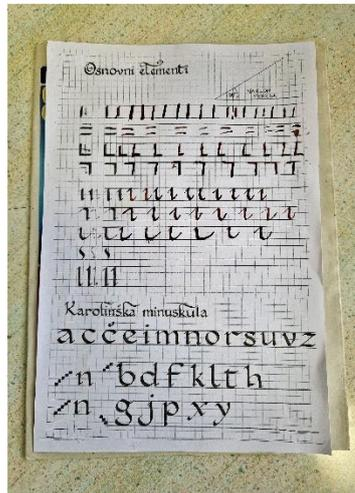 Osnovni elementi
Karolinška minuskula
a c č e i m n o r s u v z
n b d f k l t h
n g j p x y